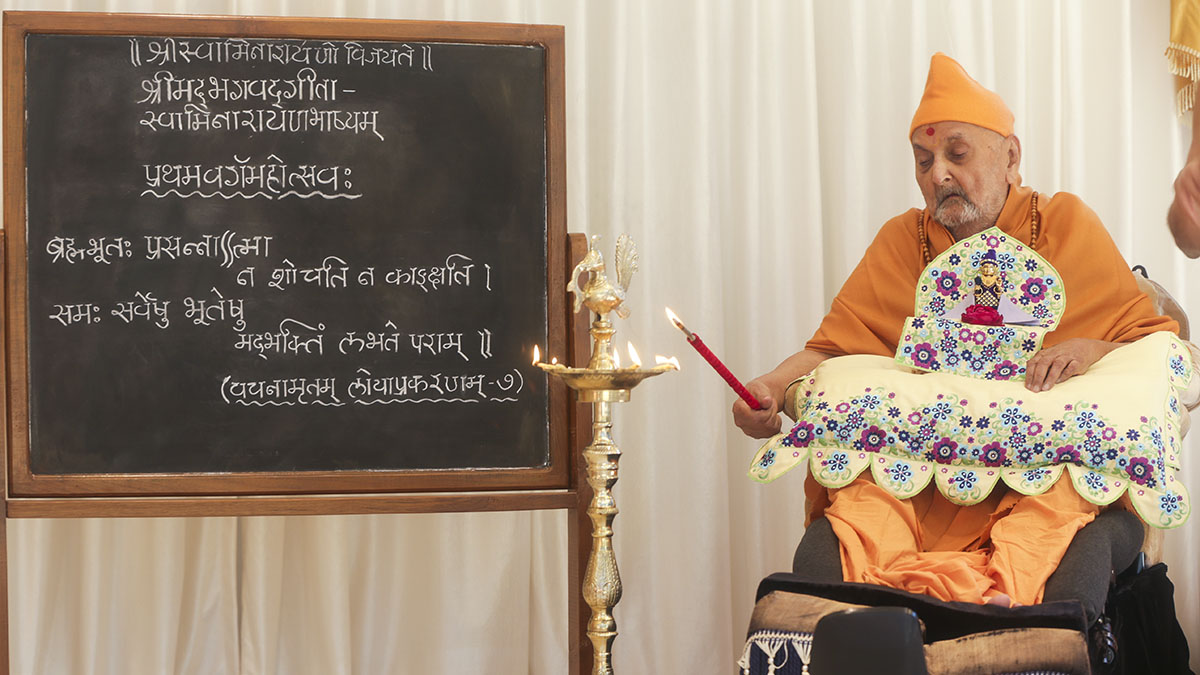 ॥ श्रीस्वामिनारायणो विजयते ॥
श्रीमद्भगवद्गीता -
स्वामिनारायणभाष्यम्
प्रथमवर्गमहोत्सवः
ब्रह्मभूतः प्रसन्नाऽऽत्मा
न शोचति न काङ्क्षति ।
समः सर्वेषु भूतेषु
मद्भक्तिं लभते पराम् ॥
(वचनामृतम् लोयाप्रकरणम् - ७)